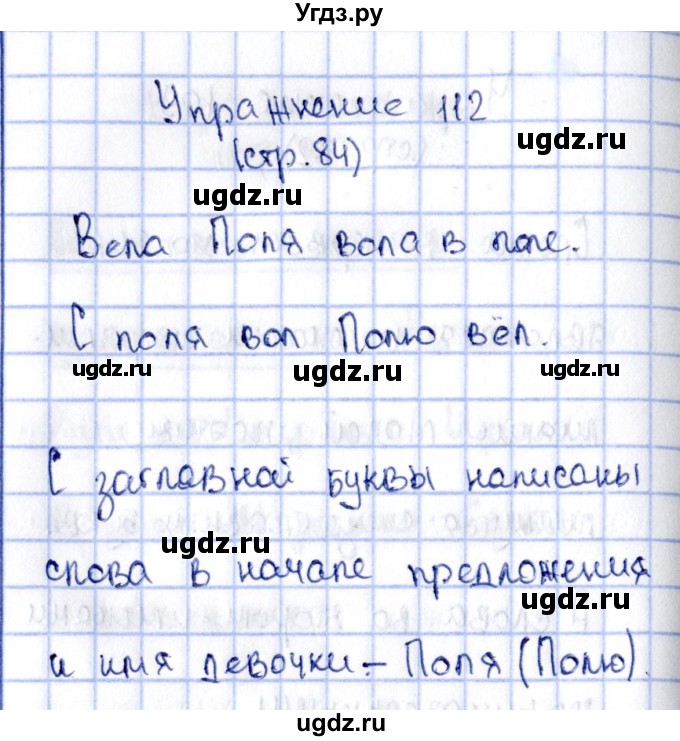 Угдз.ру
Упражнение 112
ugdz.ru
(стр. 84)
ugdz.ru
Вела Поля вола в поле.
С поля вол Полю вёл.
ugdz.ru ugdz.ru ugdz.ru
С заглавной буквы написаны
ugdz.ru
слова в начале предложения
ugdz.ru
и имя девочки – Поля (Полю).
ugdz.ru